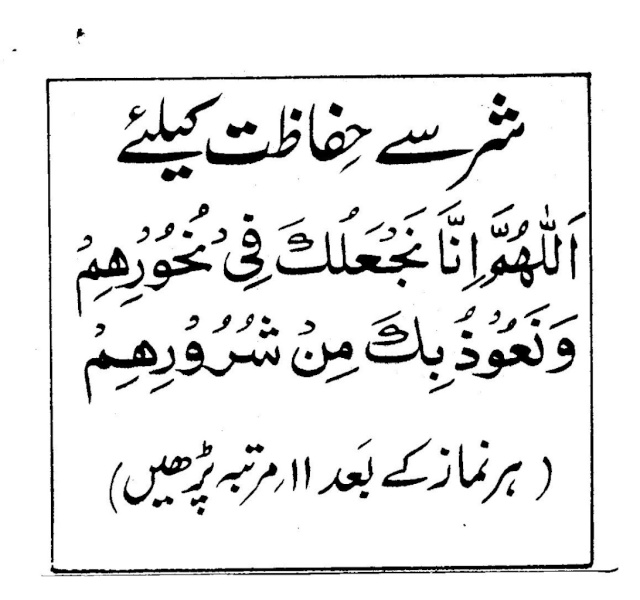 شر سے حِفاظت کیلئے
اَللّٰهُمَّ اِنَّا نَجْعَلُكَ فِیْ نُحُوْرِهِمْ
وَنَعُوْذُ بِكَ مِنْ شُرُوْرِهِمْ
( ہر نماز کے بَعد ۱۱ مرتبہ پڑھیں)